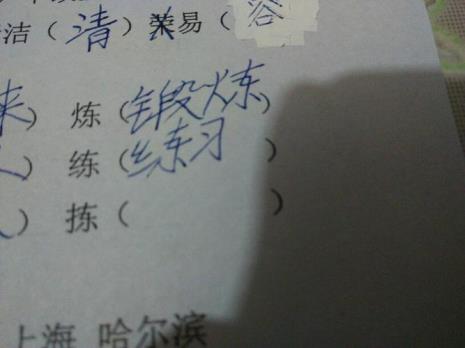 洁（清）关易（容
来）炼（锻炼）
练（练习）
拣（）
上海 哈尔滨